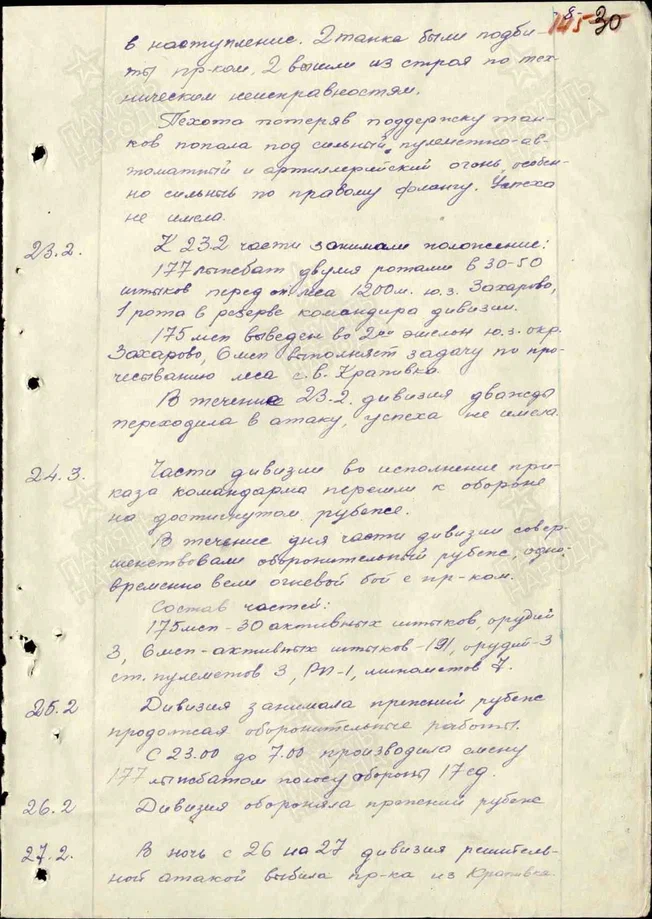 -8-
145 30
в наступление. 2 танка были подби-
ты пр-ком, 2 вышли из строя по тех-
ническим неисправностям.
Пехота потеряв поддержку тан-
ков попала под сильный, пулеметно-ав-
томатный и артиллерийский огонь, особен-
но сильный по правому флангу. Успеха
не имела.
23.2. К 23.2 части занимали положение:
177 лыжбат двумя ротами в 30-50
штыков перед леса 1200 м. ю.з. Захарово,
1 рота в резерве командира дивизии.
175 мсп выведен во 2ой эшелон ю.з. окр.
Захарово, 6 мсп выполняет задачу по про-
чесыванию леса с.в. Крапивка.
В течение 23.2. дивизия дважды
переходила в атаку, успеха не имела.
24.3. Части дивизии во исполнение при-
каза командарма перешли к обороне
на достигнутом рубеже.
В течение дня части дивизии совер-
шенствовали оборонительный рубеж, одно-
временно вели огневой бой с пр-ком.
Состав частей:
175 мсп - 30 активных штыков, орудий
3, 6 мсп - активных штыков - 191, орудий - 3
ст. пулеметов 3, РП-1, минометов 7.
25.2 Дивизия занимала прежний рубеж
продолжая оборонительные работы.
С 23.00 до 7.00 производила смену
177 лыжбатом полосу обороны 17 сд.
26.2 Дивизия обороняла прежний рубеж
27.2. В ночь с 26 на 27 дивизия решитель-
ной атакой выбила пр-ка из Крапивка
ПАМЯТЬ НАРОДА